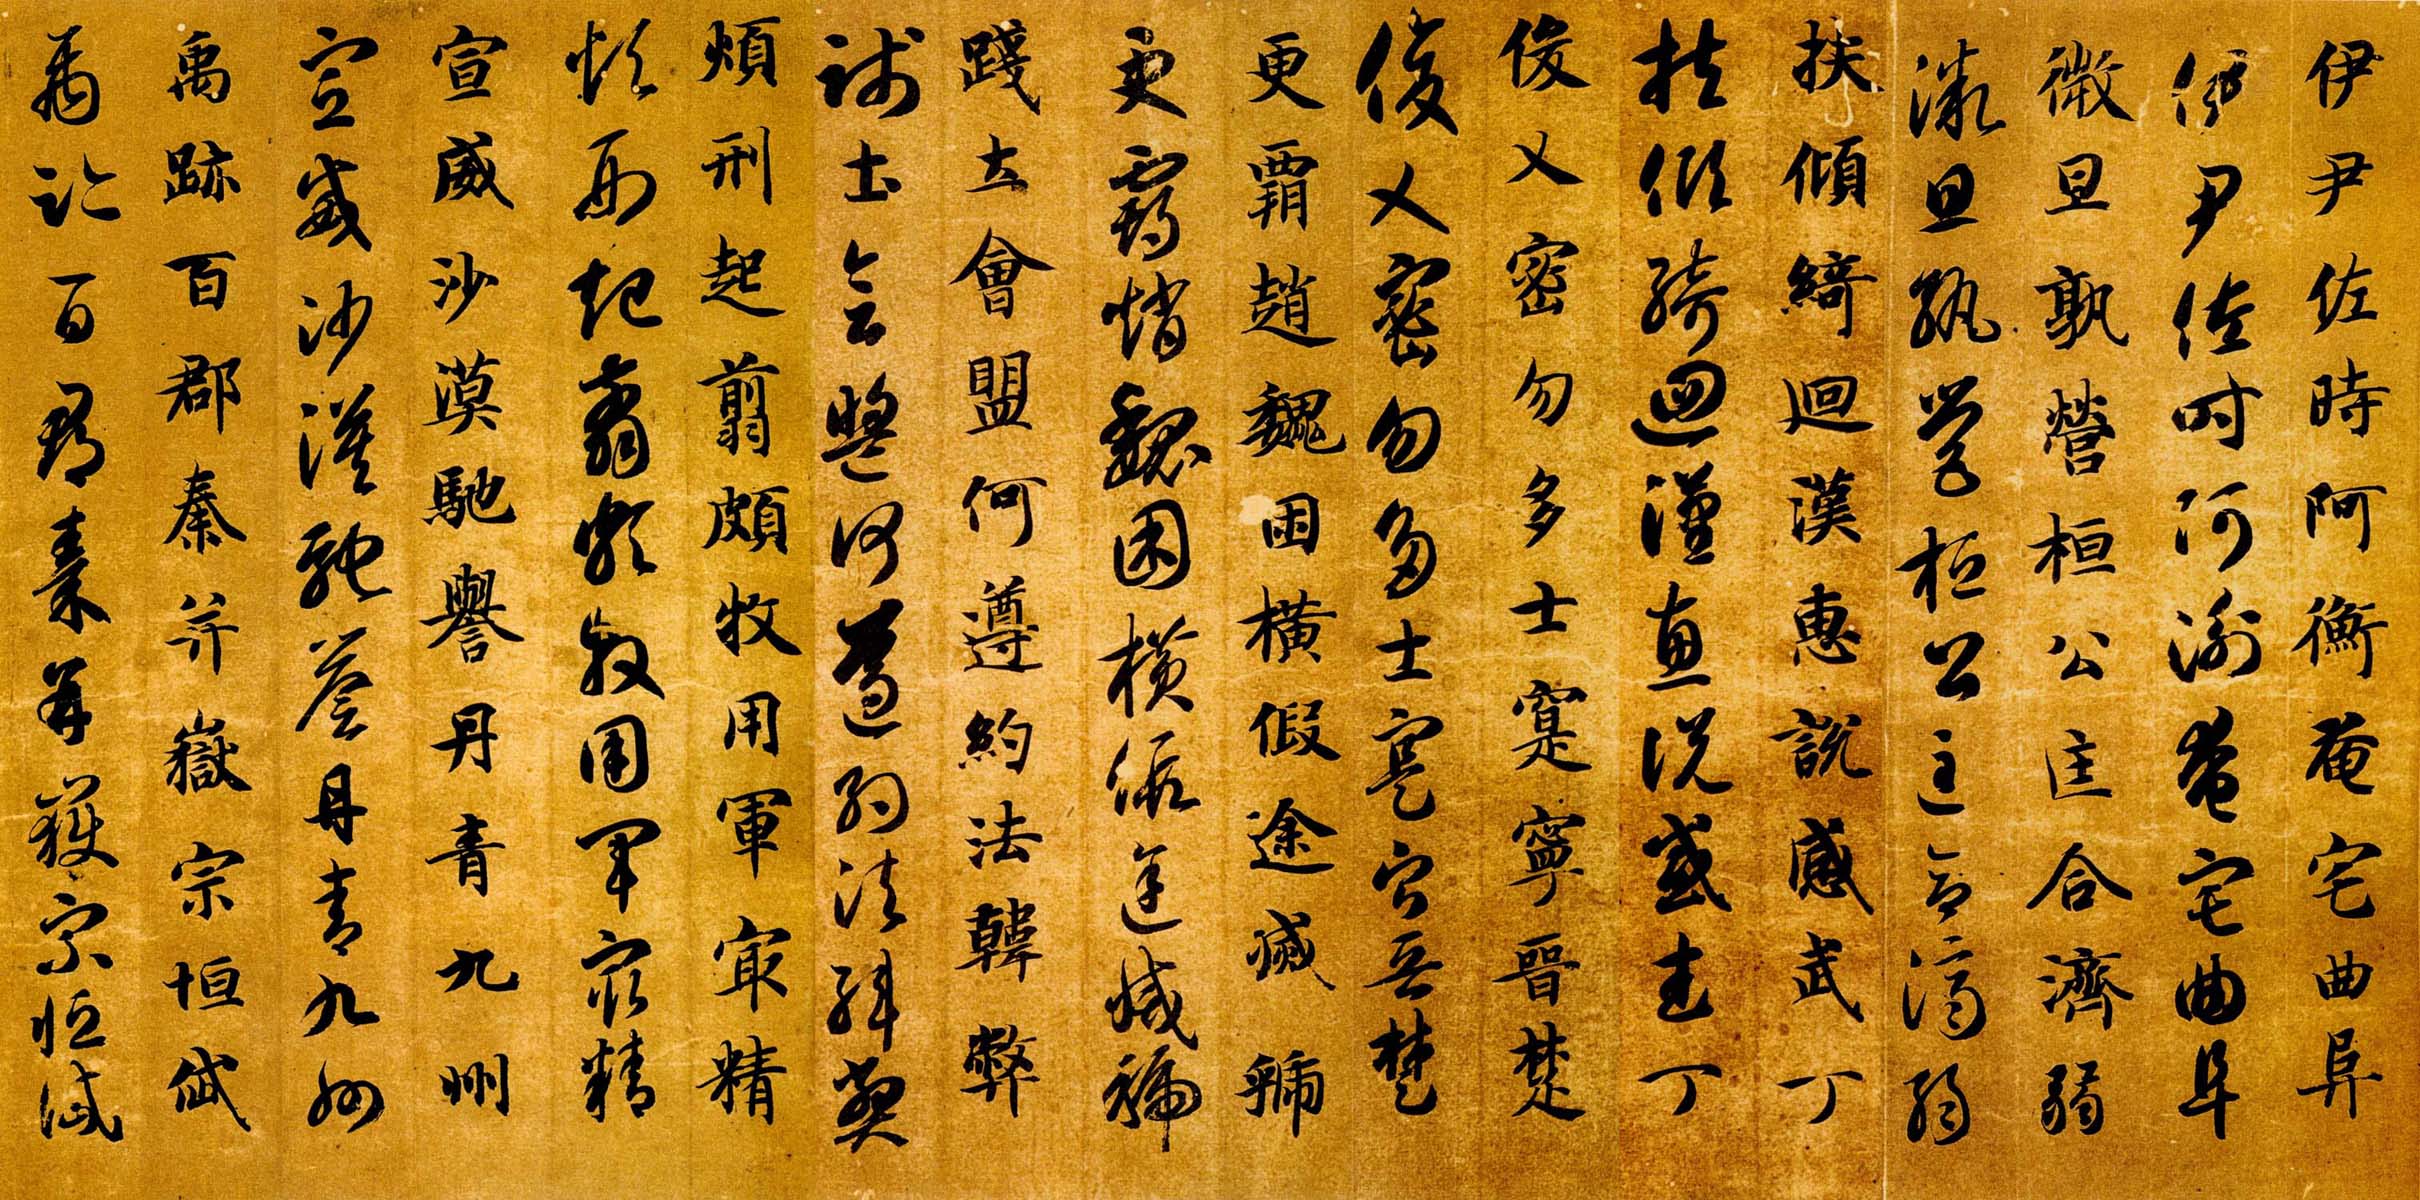 伊尹佐時阿衡奄宅曲阜
伊尹佐時阿衡奄宅曲阜
微旦孰營桓公匡合濟弱
微旦孰營桓公匡合濟弱
扶傾綺迴漢惠說感武丁
扶傾綺迴漢惠說感武丁
俊乂密勿多士寔寧晉楚
俊乂密勿多士寔寧晉楚
更霸趙魏困橫假途滅虢
更霸趙魏困橫假途滅虢
踐土會盟何遵約法韓弊
踐土會盟何遵約法韓弊
煩刑起翦頗牧用軍冣精
煩刑起翦頗牧用軍冣精
宣威沙漠馳譽丹青九州
宣威沙漠馳譽丹青九州
禹跡百郡秦并嶽宗恒岱
禹跡百郡秦并嶽宗恒岱